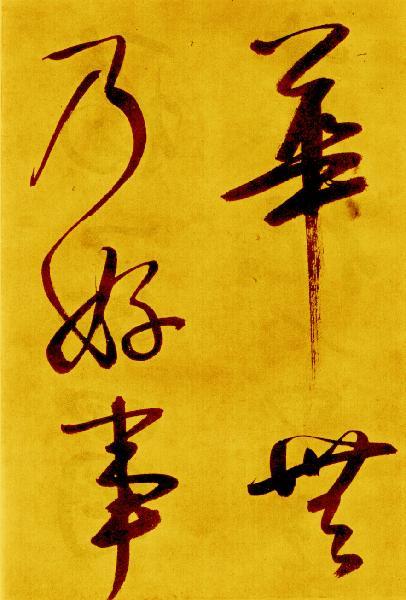 華無
乃好事